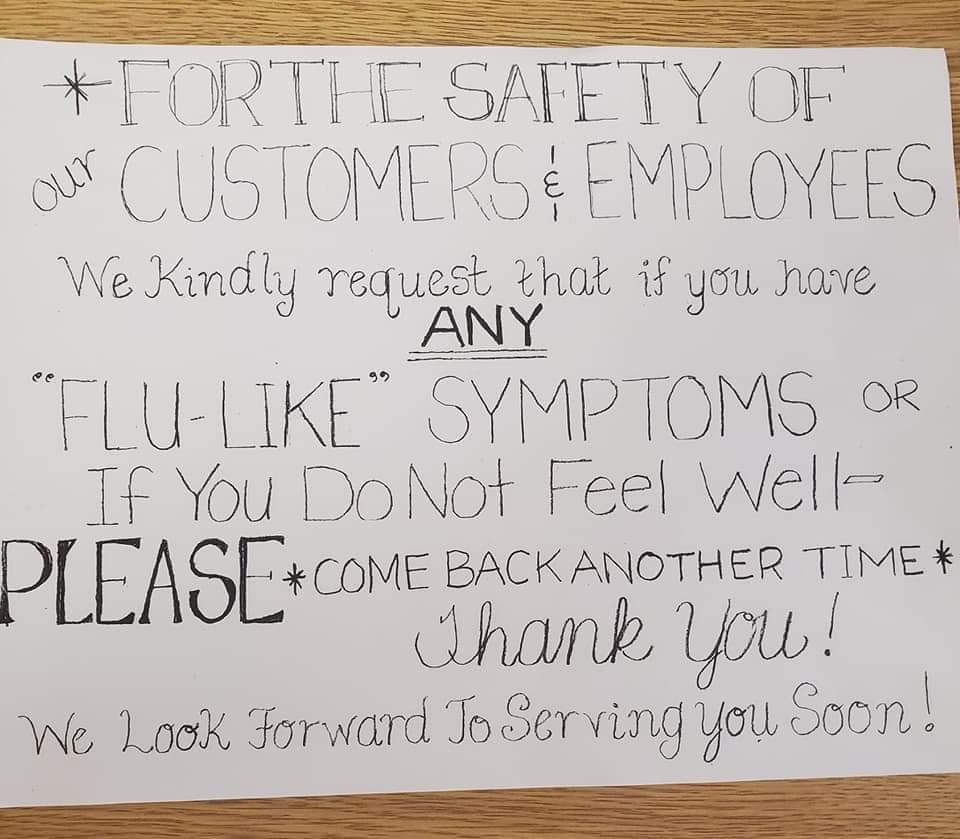 *FOR THE SAFETY OF
our CUSTOMERS & EMPLOYEES
We Kindly request that if you have
ANY
"FLU-LIKE" SYMPTOMS OR
If You Do Not Feel Well-
PLEASE *COME BACK ANOTHER TIME*
Thank You!
We Look Forward To Serving you Soon!